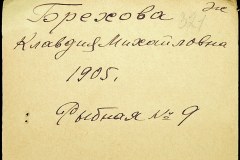 Брехова
Клавдия Михайловна
1905.
Рыбная № 9